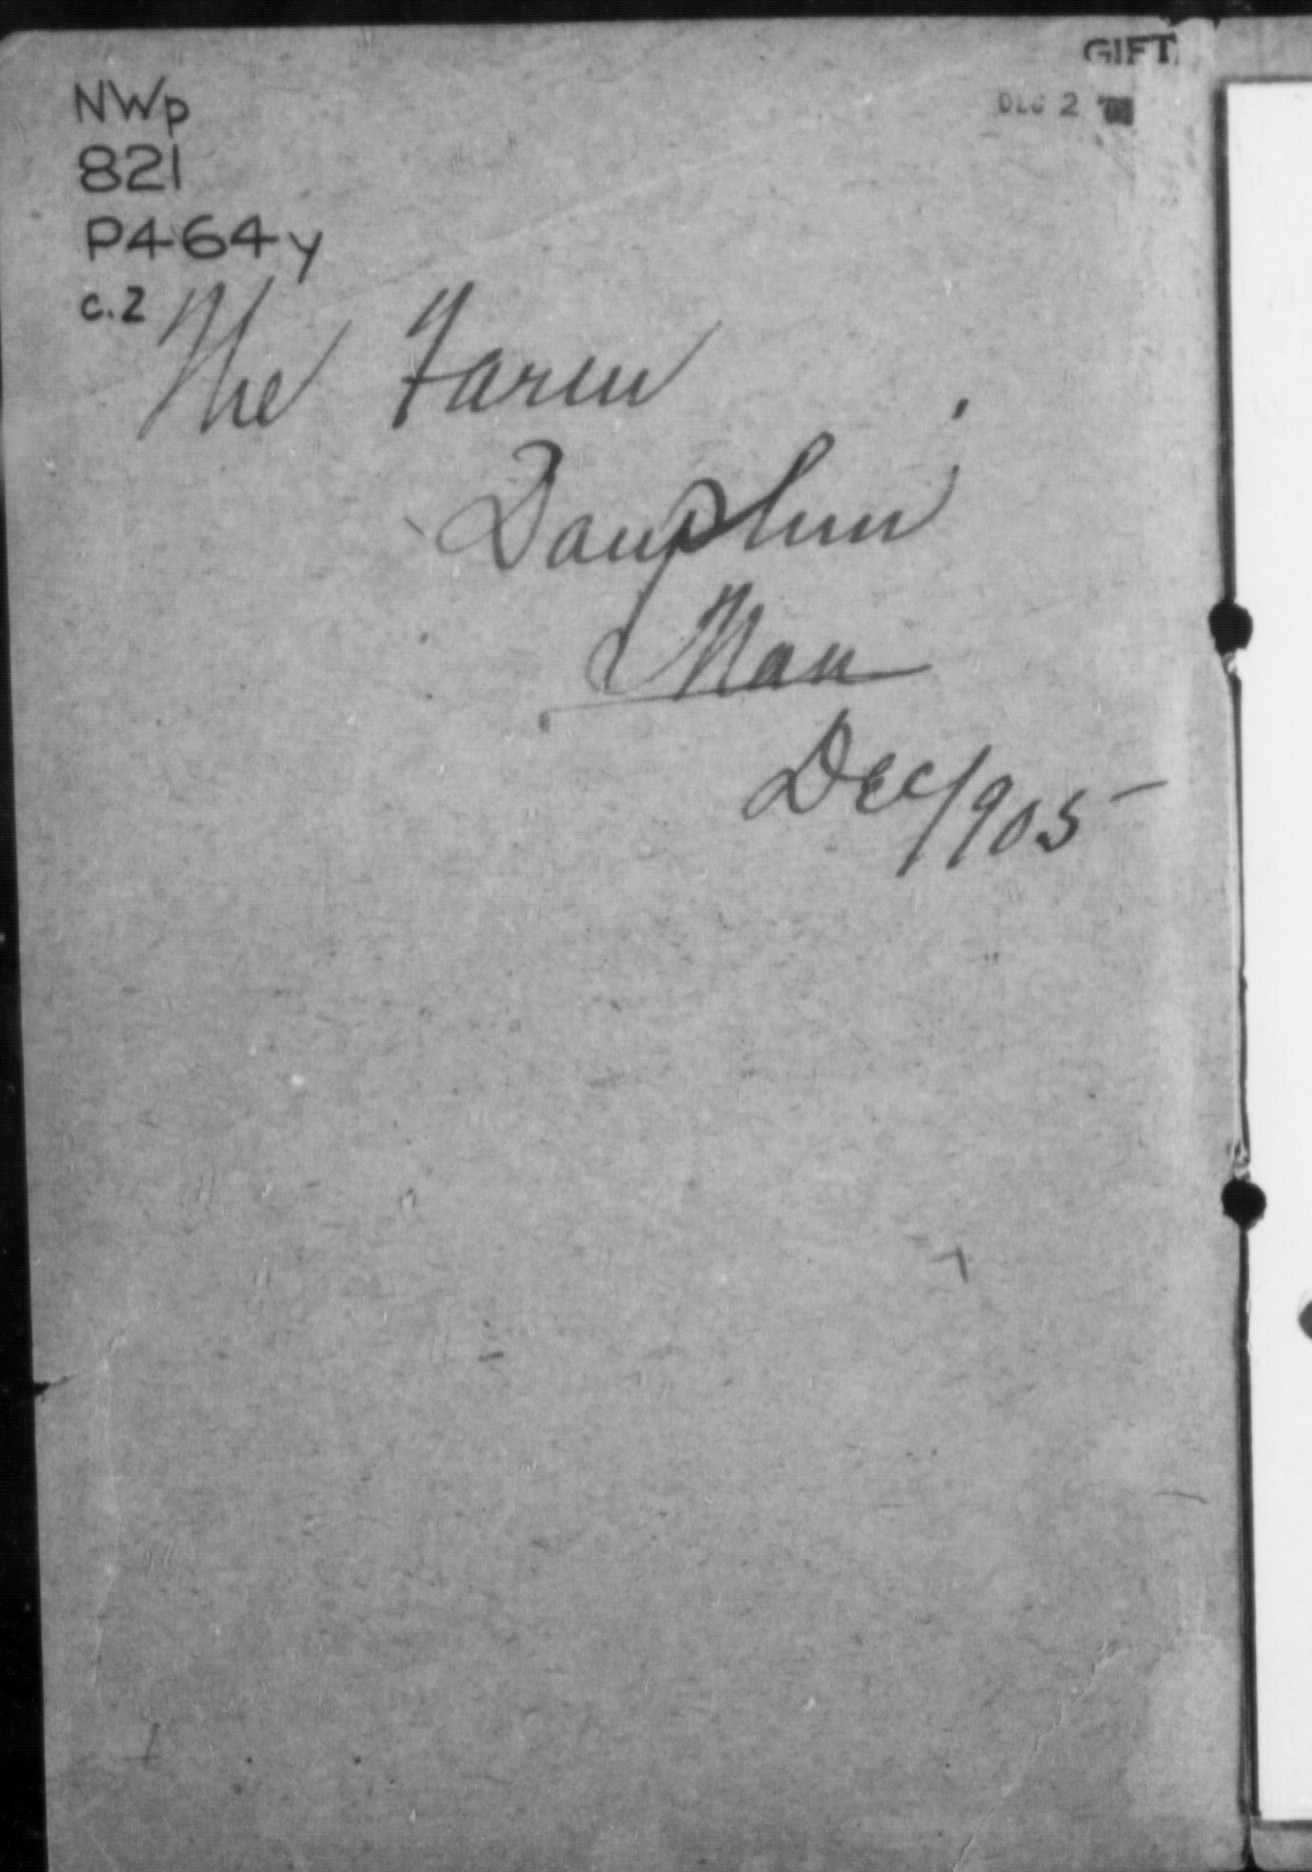 GIFT
DEC 2
NWp
821
P464y
c.2
The Farm
Dauphin
Man
Dec/1905